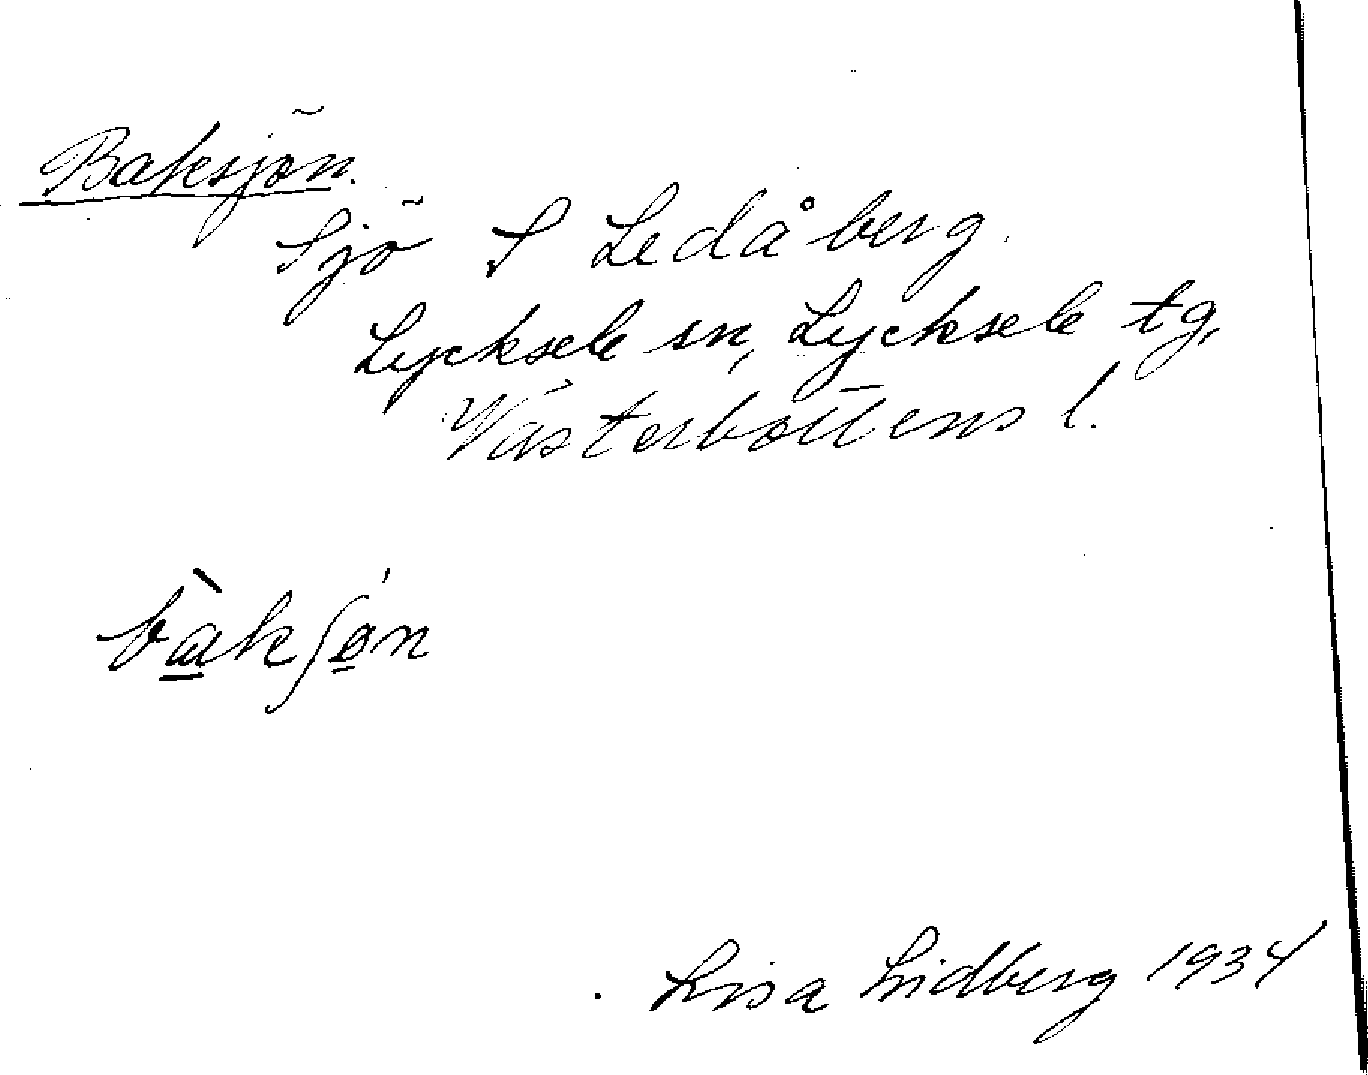 Baksjön.
Sjö S Ledåberg.
Lycksele sn, Lycksele tg,
Västerbottens l.
bàkʃøn
Lisa Lidberg 1934